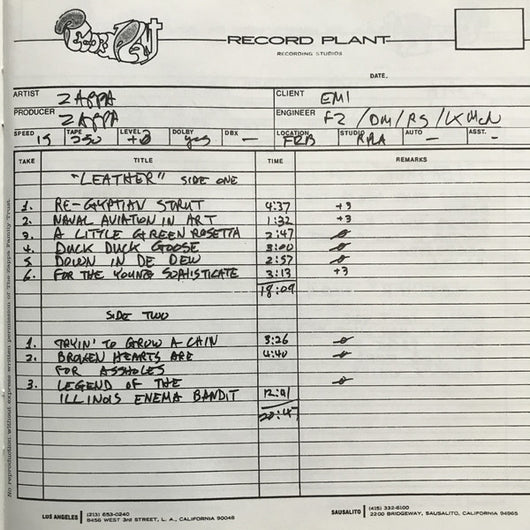 Record Plant
RECORD PLANT
RECORDING STUDIOS
DATE.
ARTIST ZAPPA CLIENT EMI
PRODUCER ZAPPA ENGINEER FZ/DM/RS/
SPEED 15 TAPE 250 LEVEL +3 DOLBY yes DBX — LOCATION STUDIO RPLA AUTO — ASST. —
TAKE TITLE TIME REMARKS
"LEATHER" SIDE ONE
1. RE-GYPTIAN STRUT 4:37 +3
2. NAVAL AVIATION IN ART 1:32 +3
3. A LITTLE GREEN ROSETTA 2:47 ø
4. DUCK DUCK GOOSE 3:00 ø
5 DOWN IN DE DEW 2:57 ø
6. FOR THE YOUNG SOPHISTICATE 3:13 +3
18:09
SIDE TWO
1. TRYIN' TO GROW A CHIN 3:26 ø
2. BROKEN HEARTS ARE 4:40 ø
FOR ASSHOLES
3. LEGEND OF THE ø
ILLINOIS ENEMA BANDIT 12:41
20:47
No reproduction without express written permission of The Zappa Family Trust.
LOS ANGELES (213) 653-0240
8456 WEST 3rd STREET, L. A., CALIFORNIA 90048
SAUSALITO (415) 332-6100
2200 BRIDGEWAY, SAUSALITO, CALIFORNIA 94965